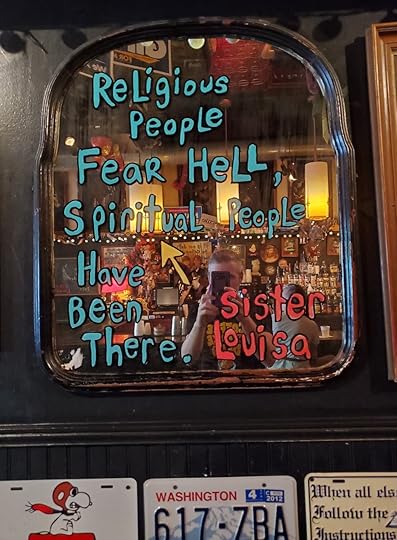 Religious
People
Fear Hell,
Spiritual People
Have
Been
There.
Sister
Louisa
WASHINGTON
4
2012
617-ZBA
When all els
Follow the
Instructions